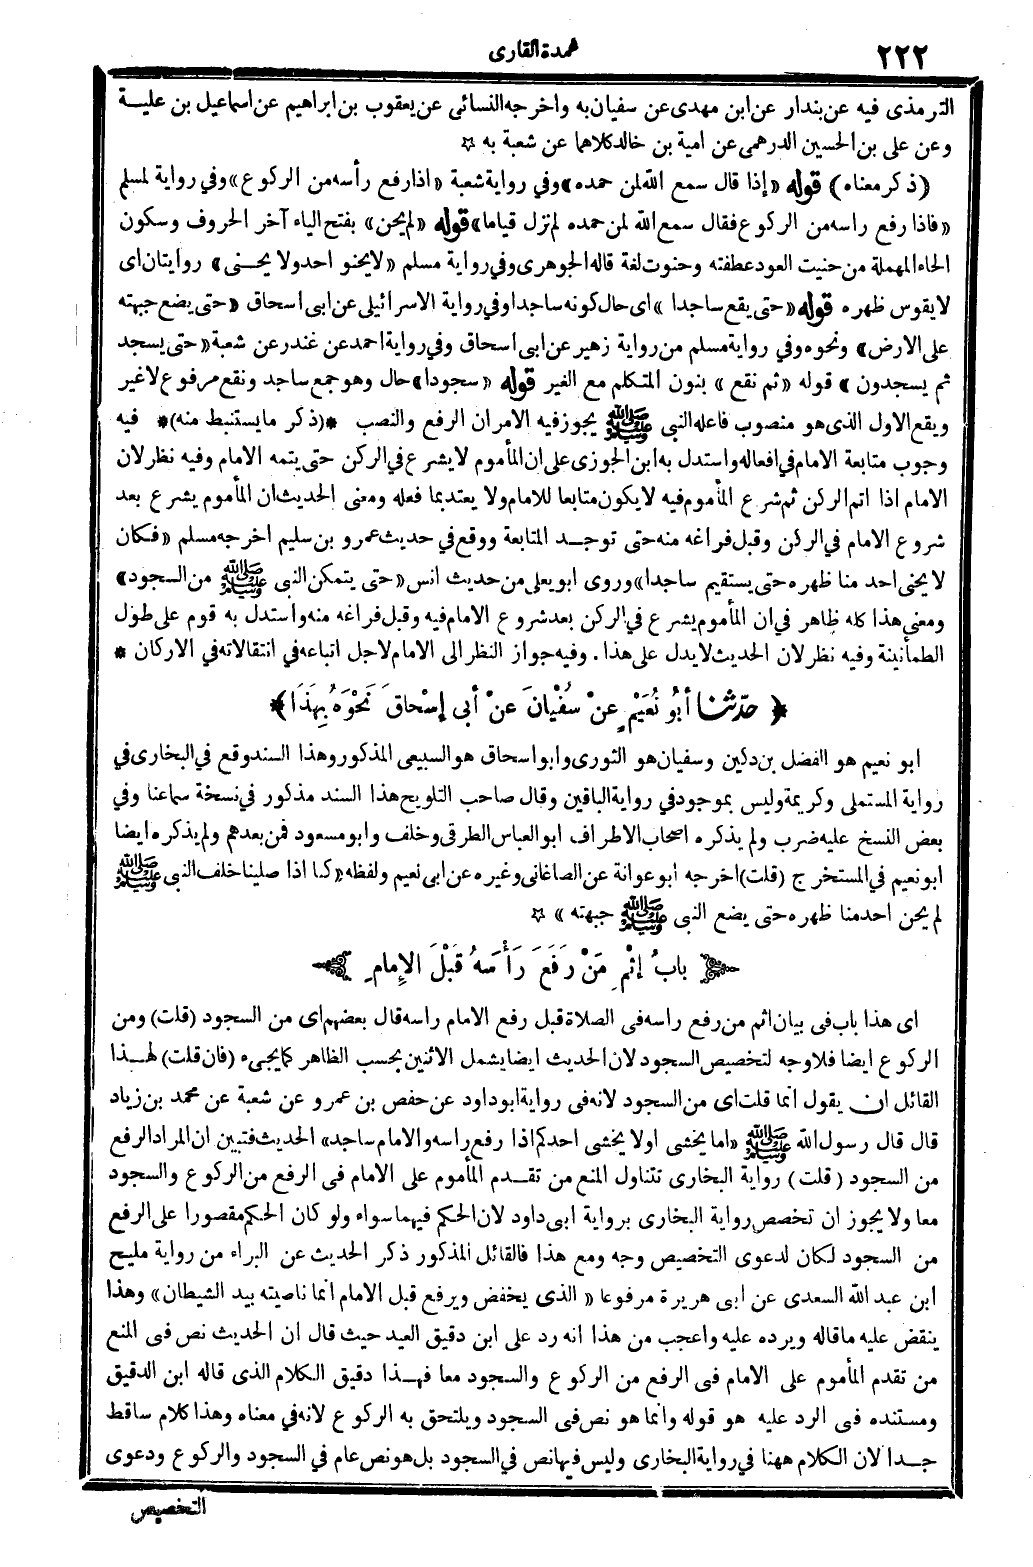 ٢٢٢
عمدة القارى
الترمذى فيه عن بندار عن ابن مهدى عن سفيان به واخرجه النسائى عن يعقوب بن ابراهيم عن اسماعيل بن علية
وعن على بن الحسين الدرهمى عن امية بن خالد كلاهما عن شعبة به ☆
(ذكر معناه) قوله «إذا قال سمع الله لمن حمده» وفي رواية شعبة «اذا رفع رأسه من الركوع» وفي رواية لمسلم
«فاذا رفع راسه من الركوع فقال سمع الله لمن حمده لم نزل قياما» قوله «لم يحن» بفتح الياء آخر الحروف وسكون
الحاء المهملة من حنيت العود عطفته وحنوت لغة قاله الجوهرى وفي رواية مسلم «لا يحنو احد ولا يحنى» روايتان اى
لا يقوس ظهره قوله «حتى يقع ساجدا» اى حال كونه ساجدا وفي رواية الاسرائيلى عن ابى اسحاق «حتى يضع جبهته
على الارض» ونحوه وفي رواية مسلم من رواية زهير عن ابى أسحاق وفي رواية احمد عن غندر عن شعبة «حتى يسجد
ثم يسجدون» قوله «ثم نقع» بنون المتكلم مع الغير قوله «سجودا» حال وهو جمع ساجد ونقع مرفوع لا غير
ويقع الاول الذى هو منصوب فاعله النبى ﷺ يجوز فيه الامران الرفع والنصب *(ذكر ما يستنبط منه)* فيه
وجوب متابعة الامام في افعاله واستدل به ابن الجوزى على ان المأموم لا يشرع في الركن حتى يتمه الامام وفيه نظر لان
الامام اذا اتم الركن ثم شرع المأموم فيه لا يكون متابعا للامام ولا يعتد بما فعله ومعنى الحديث ان المأموم يشرع بعد
شروع الامام في الركن وقبل فراغه منه حتى توجد المتابعة ووقع في حديث عمرو بن سليم اخرجه مسلم «فكان
لا يحنى احد منا ظهره حتى يستقيم ساجدا» وروى ابو يعلى من حديث انس «حتى يتمكن النبى ﷺ من السجود»
ومعنى هذا كله ظاهر في ان المأموم يشرع في الركن بعد شروع الامام فيه وقبل فراغه منه واستدل به قوم على طول
الطمأنينة وفيه نظر لان الحديث لا يدل على هذا . وفيه جواز النظر الى الامام لاجل اتباعه في انتقالاته في الاركان *
﴿ حدّثنا أبُو نُعَيْمٍ عنْ سُفْيانَ عنْ أبى إسْحاقَ نَحْوَهُ بِهَذَا ﴾*
ابو نعيم هو الفضل بن دكين وسفيان هو الثورى وابو اسحاق هو السبيعى المذكور وهذا السند وقع في البخارى في
رواية المستملى وكريمة وليس بموجود في رواية الباقين وقال صاحب التلويح هذا السند مذكور في نسخة سماعنا وفي
بعض النسخ عليه ضرب ولم يذكره اصحاب الاطراف ابو العباس الطرقى وخلف وابو مسعود فمن بعدهم ولم يذكره ايضا
ابو نعيم في المستخرج (قلت) اخرجه ابو عوانة عن الصاغانى وغيره عن ابى نعيم ولفظه «كنا اذا صلينا خلف النبى ﷺ
لم يحن احد منا ظهره حتى يضع النبى ﷺ جبهته» ☆
باب إثْمِ مَنْ رَفَعَ رَأْسَهُ قَبْلَ الإمامِ
اى هذا باب فى بيان اثم من رفع راسه فى الصلاة قبل رفع الامام راسه قال بعضهم اى من السجود (قلت) ومن
الركوع ايضا فلا وجه لتخصيص السجود لان الحديث ايضا يشمل الاثنين بحسب الظاهر كما يجىء (فان قلت) لهذا
القائل ان يقول انما قلت اى من السجود لانه فى رواية ابو داود عن حفص بن عمرو عن شعبة عن محمد بن زياد
قال قال رسول الله ﷺ «اما يخشى اولا يخشى احدكم اذا رفع راسه والامام ساجد» الحديث فتبين ان المراد الرفع
من السجود (قلت) رواية البخارى تتناول المنع من تقدم المأموم على الامام فى الرفع من الركوع والسجود
معا ولا يجوز ان تخصص رواية البخارى برواية ابى داود لان الحكم فيهما سواء ولو كان الحكم مقصورا على الرفع
من السجود لكان لدعوى التخصيص وجه ومع هذا فالقائل المذكور ذكر الحديث عن البراء من رواية مليح
ابن عبد الله السعدى عن ابى هريرة مرفوعا «الذى يخفض ويرفع قبل الامام انما ناصيته بيد الشيطان» وهذا
ينقض عليه ما قاله ويرده عليه واعجب من هذا انه رد على ابن دقيق العيد حيث قال ان الحديث نص فى المنع
من تقدم المأموم على الامام فى الرفع من الركوع والسجود معا فهذا دقيق الكلام الذى قاله ابن الدقيق
ومستنده فى الرد عليه هو قوله وانما هو نص فى السجود ويلتحق به الركوع لانه في معناه وهذا كلام ساقط
جدا لان الكلام ههنا في رواية البخارى وليس فيها نص في السجود بل هو نص عام في السجود والركوع ودعوى
التخصيص